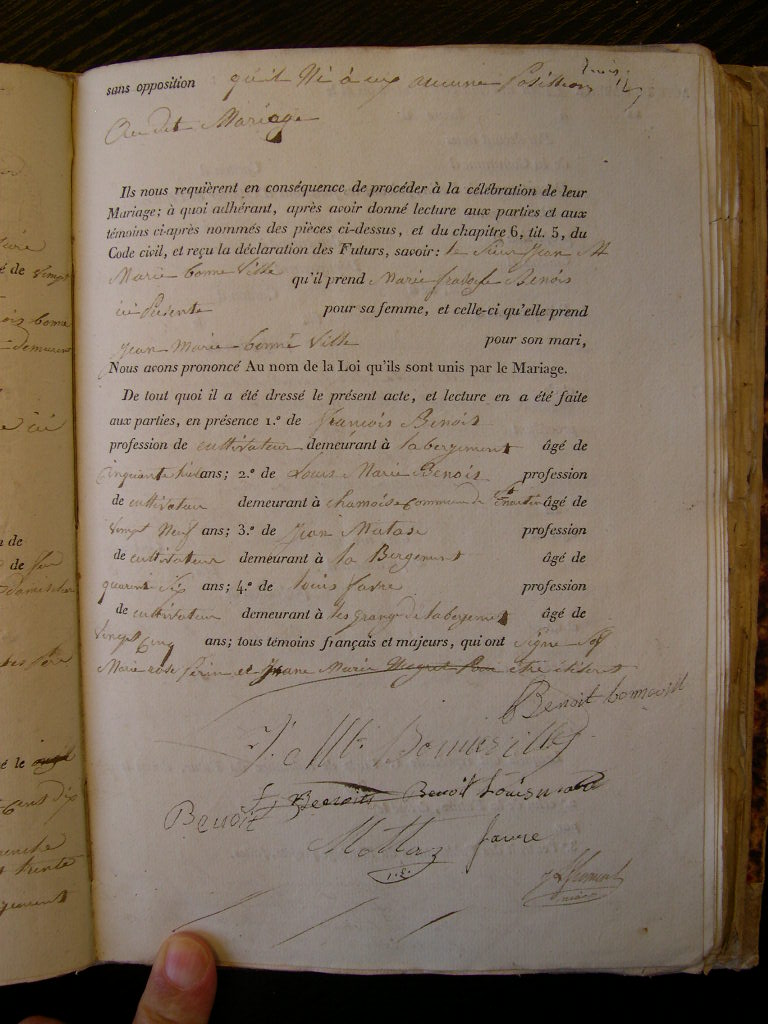 sans opposition qu'il Ni à eux aucune Position
Au dit Mariage
Ils nous requièrent en conséquence de procéder à la célébration de leur
Mariage; à quoi adhérant, après avoir donné lecture aux parties et aux
témoins ci-après nommés des pièces ci-dessus, et du chapitre 6, tit. 5, du
Code civil, et reçu la déclaration des Futurs, savoir: le Sieur Jean
Marie bonne Ville qu'il prend Marie Benois
ici Présente pour sa femme, et celle-ci qu'elle prend
Jean Marie bonne Ville pour son mari,
Nous avons prononcé Au nom de la Loi qu'ils sont unis par le Mariage.
De tout quoi il a été dressé le présent acte, et lecture en a été faite
aux parties, en présence 1.º de francois Benois
profession de cultivateur demeurant à labergement âgé de
cinquante ans; 2.º de Louis Marie Benois profession
de cultivateur demeurant à chamoise commune de âgé de
Vingt Neuf ans; 3.º de Jean Matas profession
de cultivateur demeurant à la Bergement âgé de
quarant six ans; 4.º de louis favre profession
de cultivateur demeurant à les grange de labergement âgé de
Vingt Cinq ans; tous témoins français et majeurs, qui ont signe
Marie rose Perin et Jeane Marie
Benoit bonnevill
J. Mie Bonneville
Benoit Benoit Benoit Louis marie
Mottaz favre